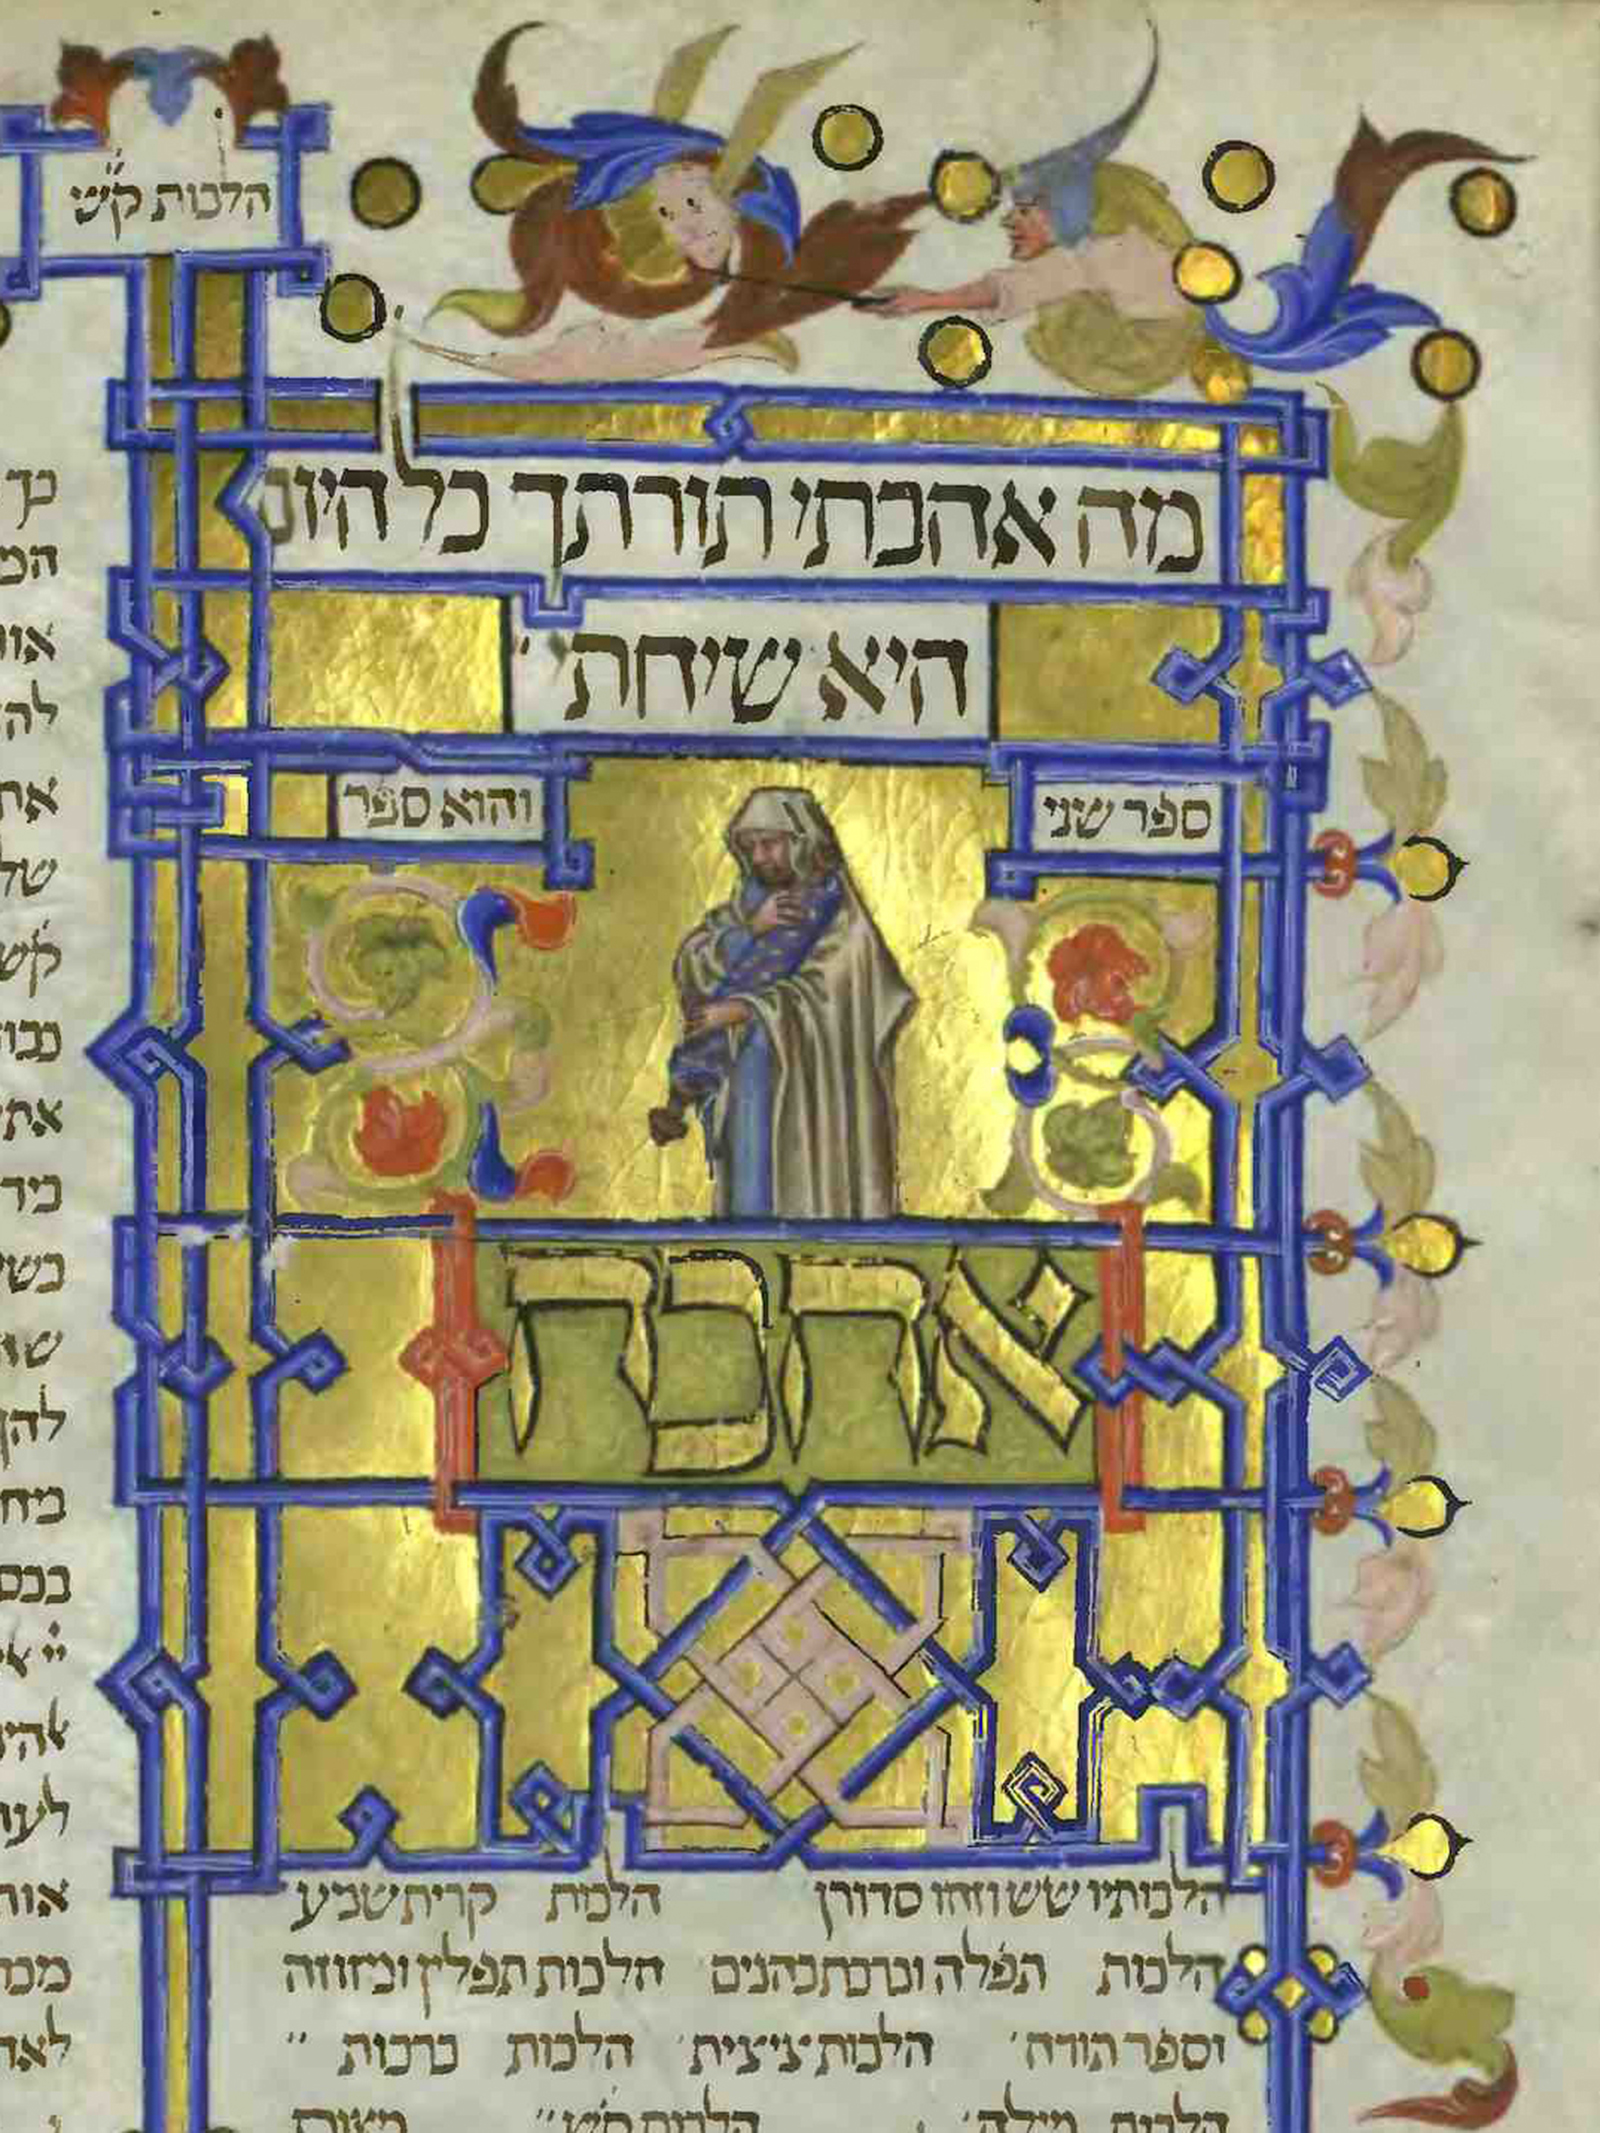 הלכות ק״ש
מה אהבתי תורתך כל היום
היא שיחתי
ספר שני
והוא ספר
אהבה
הלכותיו שש וזהו סדורן הלכות קרית שמע
הלכות תפלה וברכת כהנים הלכות תפלין ומזוזה
וספר תורה הלכות ציצית הלכות ברכות
הלכות מילה
כך
המ
אור
לה
את
של
ק״ש
את
כשי
להן
בכס
לעו
אור